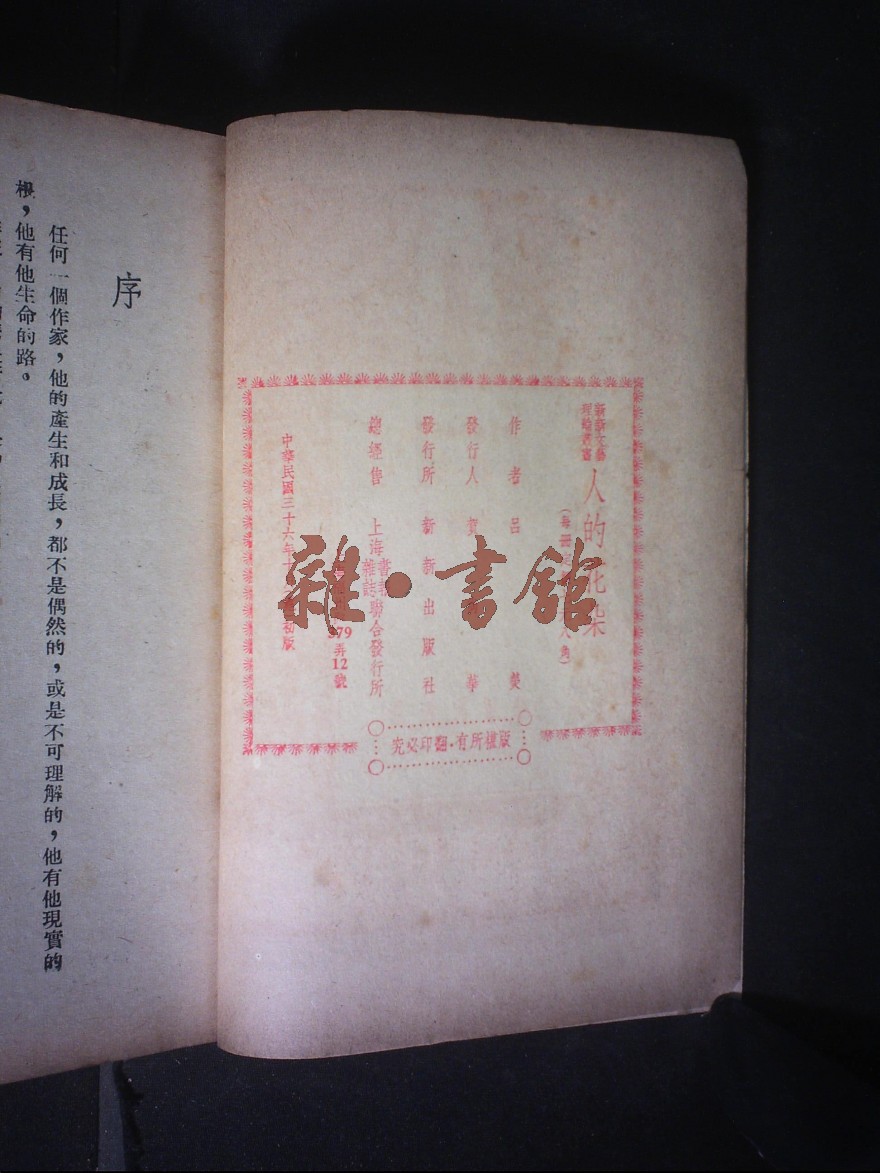 新新文藝
理論叢書
人的花朵
(每冊定 八角)
作者 呂 熒
發行人 賀 華
發行所 新新出版社
總經售 上海書報雜誌聯合發行所
379弄12號
中華民國三十六年十 初版
版權所有·翻印必究
雜·書館
序
任何一個作家,他的產生和成長,都不是偶然的,或是不可理解的,他有他現實的
根,他有他生命的路。